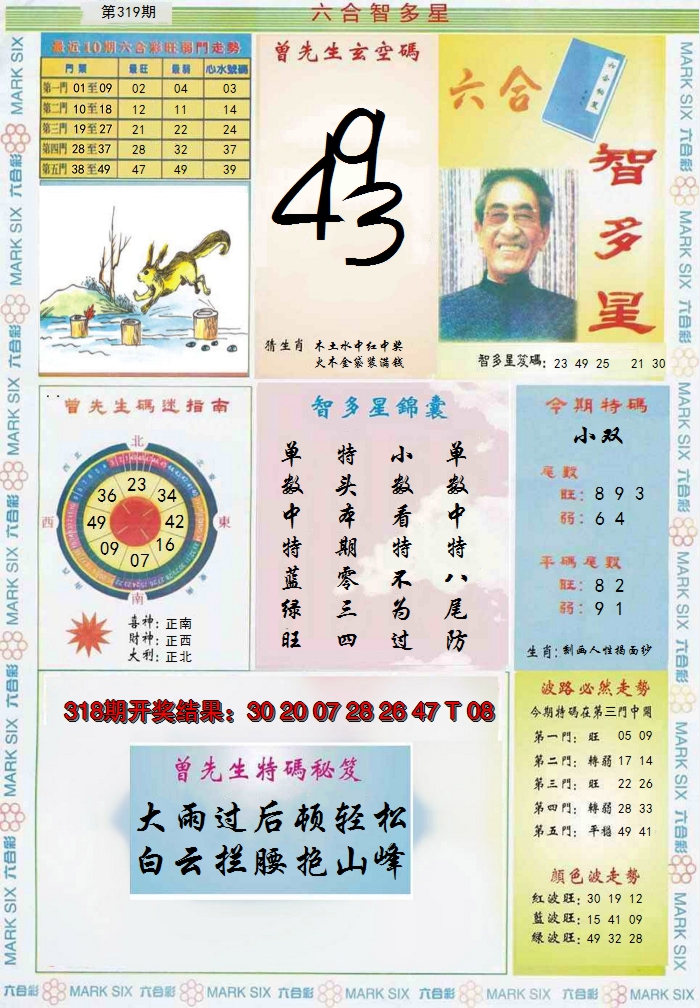 第319期
六合智多星
最近10期六合彩旺弱門走勢
門類 最旺 最弱 心水號碼
第一門 01至09 02 04 03
第二門 10至18 12 11 14
第三門 19至27 21 22 24
第四門 28至37 28 32 37
第五門 38至49 47 49 39
曾先生玄空碼
猜生肖 木土水中红中奖
火木金袋装满钱
六合
智多星
智多星笈碼: 23 49 25 21 30
曾先生碼迷指南
北
西
東
南
23
34
42
16
07
09
49
36
喜神: 正南
財神: 正西
大利: 正北
智多星錦囊
单数中特八尾防
小数看特不为过
特头本期零三四
单数中特蓝绿旺
今期特碼
小双
尾數
旺: 8 9 3
弱: 6 4
平碼尾數
旺: 8 2
弱: 9 1
生肖: 刻画人性揭面纱
318期开奖结果: 30 20 07 28 26 47 T 08
曾先生特碼秘笈
大雨过后顿轻松
白云拦腰抱山峰
波路必然走勢
今期特碼在第三門中開
第一門: 旺 05 09
第二門: 轉弱 17 14
第三門: 旺 22 26
第四門: 轉弱 28 33
第五門: 平穩 49 41
顏色波走勢
紅波旺: 30 19 12
藍波旺: 15 41 09
綠波旺: 49 32 28
六合彩 MARK SIX 六合彩 MARK SIX 六合彩 MARK SIX 六合彩 MARK SIX 六合彩